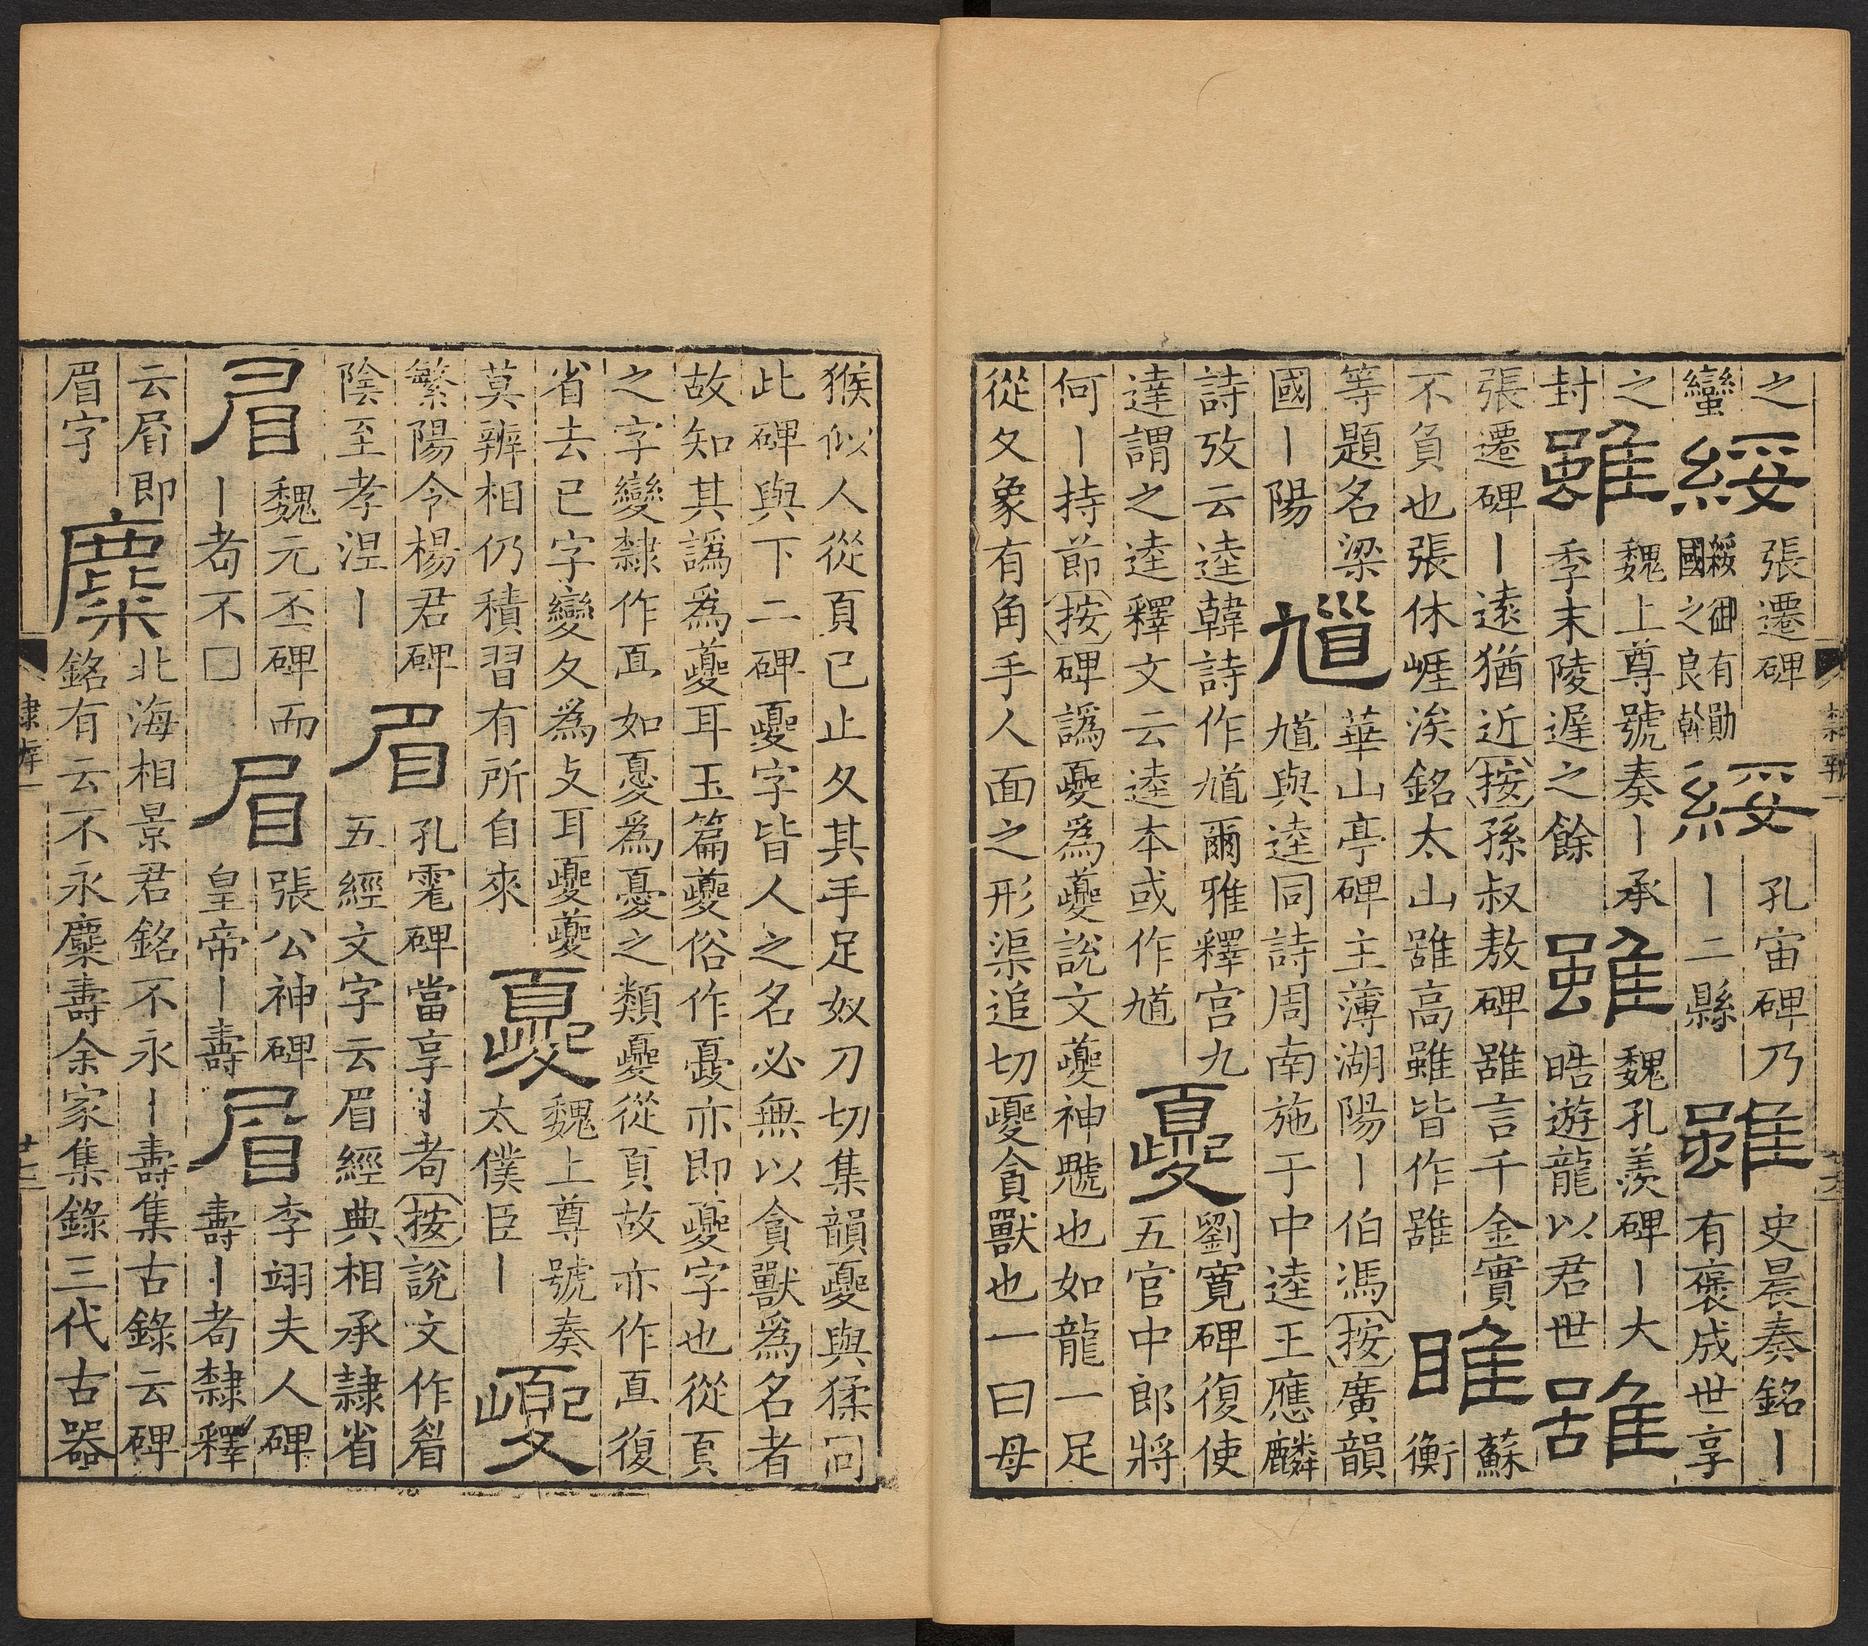 之
蠻
綏
張遷碑
綏御有勛
國之良幹
綏
孔宙碑乃
丨二縣
雖
史晨奏銘丨
有褒成世享
之
封
雖
魏上尊號奏丨承
季末陵遲之餘
雖
魏孔羨碑丨大
晧遊龍以君世
雖
張遷碑丨遠猶近按孫叔敖碑雖言千金實
不負也張休崕涘銘太山雖高雖皆作雖
睢
蘇
衡
等題名梁
國丨陽
馗
華山亭碑主薄湖陽丨伯馮按廣韻
馗與逵同詩周南施于中逵王應麟
詩攷云逵韓詩作馗爾雅釋宫九
達謂之逵釋文云逵本或作馗
夔
劉寬碑復使
五官中郎將
何丨持節按碑譌夒為夔說文夔神魖也如龍一足
從夊象有角手人面之形渠追切夒貪獸也一曰母
猴似人從頁已止夊其手足奴刀切集韻夒與猱同
此碑與下二碑夒字皆人之名必無以貪獸爲名者
故知其譌爲夔耳玉篇夔俗作㚆亦即夒字也從頁
之字變隸作直如憂爲憂之類夒從頁故亦作直復
省去已字變夊爲攴耳夒夔
莫辨相仍積習有所自來
夒
魏上尊號奏
太僕臣丨
夒
繁陽令楊君碑
陰至孝涅丨
眉
孔宙碑當享丨耇按說文作睂
五經文字云眉經典相承隷省
眉
魏元丕碑而
丨耇不□
眉
張公神碑
皇帝丨壽
眉
李翊夫人碑
壽丨耇隸釋
云眉即
眉字
麋
北海相景君銘不永丨壽集古錄云碑
銘有云不永麋壽余家集錄三代古器